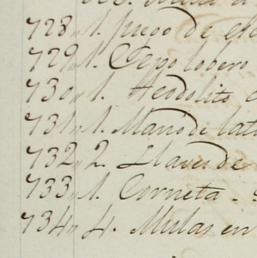 728,, 1. juego de
729,, 1. Cepo lobero
730,, 1. Teodolito
731,, 1. Mano de
732,, 2. Llaves de
733,, 1. Corneta.
734,, 4. Mulas en